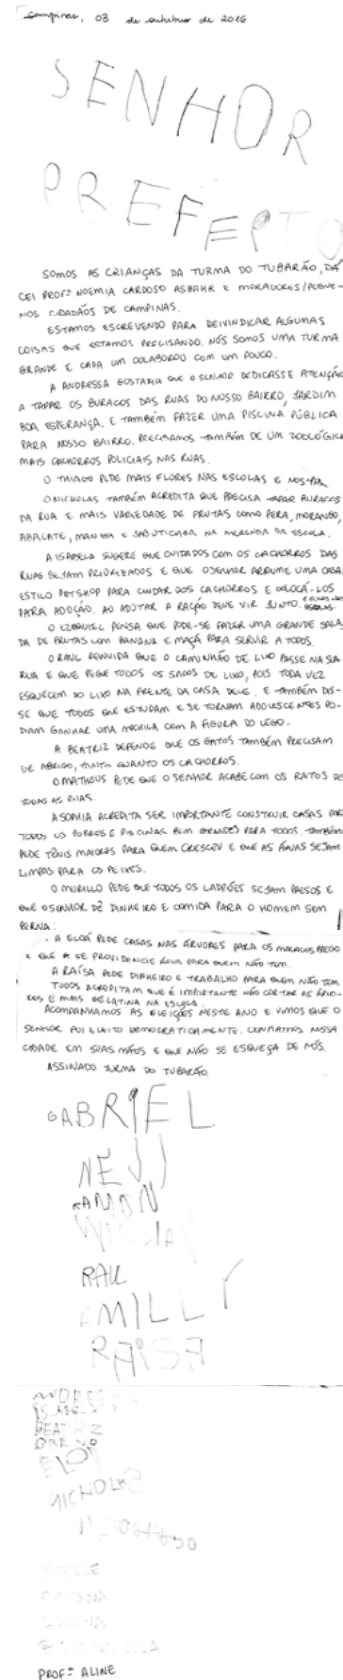 Campinas, 03 de outubro de 2016
SENHOR
PREFEPTO
SOMOS AS CRIANÇAS DA TURMA DO TUBARÃO, DA
CEI PROFª NOEMIA CARDOSO ASBAHR E MORADORES/PEQUE-
NOS CIDADÃOS DE CAMPINAS.
ESTAMOS ESCREVENDO PARA REIVINDICAR ALGUMAS
COISAS QUE ESTAMOS PRECISANDO. NÓS SOMOS UMA TURMA
GRANDE E CADA UM COLABOROU COM UM POUCO.
A ANDRESSA GOSTARIA QUE O SENHOR DEDICASSE ATENÇÃO
A TAPAR OS BURACOS DAS RUAS DO NOSSO BAIRRO, JARDIM
BOA ESPERANÇA. E TAMBÉM FAZER UMA PISCINA PÚBLICA
PARA NOSSO BAIRRO. PRECISAMOS TAMBÉM DE UM ZOOLÓGICO
MAIS CACHORROS POLICIAIS NAS RUAS.
O THIAGO PEDE MAIS FLORES NAS ESCOLAS E
O NICHOLAS TAMBÉM ACREDITA QUE PRECISA TAPAR BURACOS
DA RUA E MAIS VARIEDADE DE FRUTAS COMO PERA, MORANGO,
ABACATE, MANGA E JABUTICABA NA MERENDA DA ESCOLA.
A ISABELA SUGERE QUE CUIDADOS COM OS CACHORROS DAS
RUAS SEJAM PRIORIZADOS E QUE O SENHOR ARRUME UMA CASA
ESTILO PETSHOP PARA CUIDAR DOS CACHORROS E COLOCÁ-LOS
PARA ADOÇÃO. AO ADOTAR A RAÇÃO DEVE VIR JUNTO.
O EZEQUIEL PENSA QUE PODE-SE FAZER UMA GRANDE SALA-
DA DE FRUTAS COM BANANA E MAÇÃ PARA SERVIR A TODOS.
O RAUL REIVINDICA QUE O CAMINHÃO DE LIXO PASSE NA SUA
RUA E QUE PEGUE TODOS OS SACOS DE LIXO, POIS TODA VEZ
ESQUECEM DO LIXO NA FRENTE DA CASA DELE. E TAMBÉM DIS-
SE QUE TODOS QUE ESTUDAM E SE TORNAM ADOLESCENTES PO-
DIAM GANHAR UMA MOCHILA COM A FIGURA DO LEGO.
A BEATRIZ DEFENDE QUE OS GATOS TAMBÉM PRECISAM
DE ABRIGO, TANTO QUANTO OS CACHORROS.
O MATHEUS PEDE QUE O SENHOR ACABE COM OS RATOS DE
TODAS AS RUAS.
A SOPHIA ACREDITA SER IMPORTANTE CONSTRUIR CASAS PARA
TODOS OS POBRES E PISCINAS BEM GRANDES PARA TODOS. TAMBÉM
PEDE TÊNIS MAIORES PARA QUEM CRESCEU E QUE AS ÁGUAS SEJAM
LIMPAS PARA OS PEIXES.
O MURILLO PEDE QUE TODOS OS LADRÕES SEJAM PRESOS E
QUE O SENHOR DÊ DINHEIRO E COMIDA PARA O HOMEM SEM
PERNA.
A ELOÁ PEDE CASAS NAS ÁRVORES PARA OS MACACOS PREGO
E QUE SE PROVIDENCIE ÁGUA PARA QUEM NÃO TEM.
A RAÍSA PEDE DINHEIRO E TRABALHO PARA QUEM NÃO TEM.
TODOS ACREDITAM QUE É IMPORTANTE NÃO CORTAR AS ÁRVO-
RES E MAIS GELATINA NA ESCOLA.
ACOMPANHAMOS AS ELEIÇÕES NESTE ANO E VIMOS QUE O
SENHOR FOI ELEITO DEMOCRATICAMENTE. CONFIAMOS NOSSA
CIDADE EM SUAS MÃOS E QUE NÃO SE ESQUEÇA DE NÓS.
ASSINADO TURMA DO TUBARÃO
GABRIEL
RAUL
EMILLY
RAISA
ANDRESSA
BEATRIZ
ELOA
NICHOLAS
PROFª ALINE